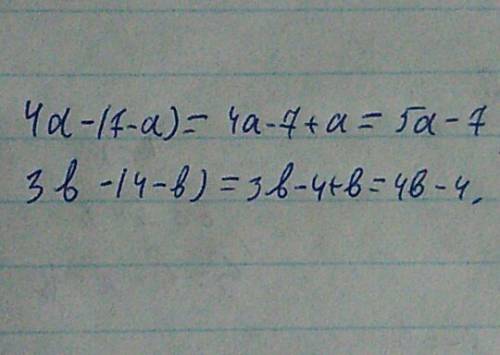 4a-(7-a)= 4a-7+a= 5a-7
3b-(4-b)=3b-4+b=4b-4.